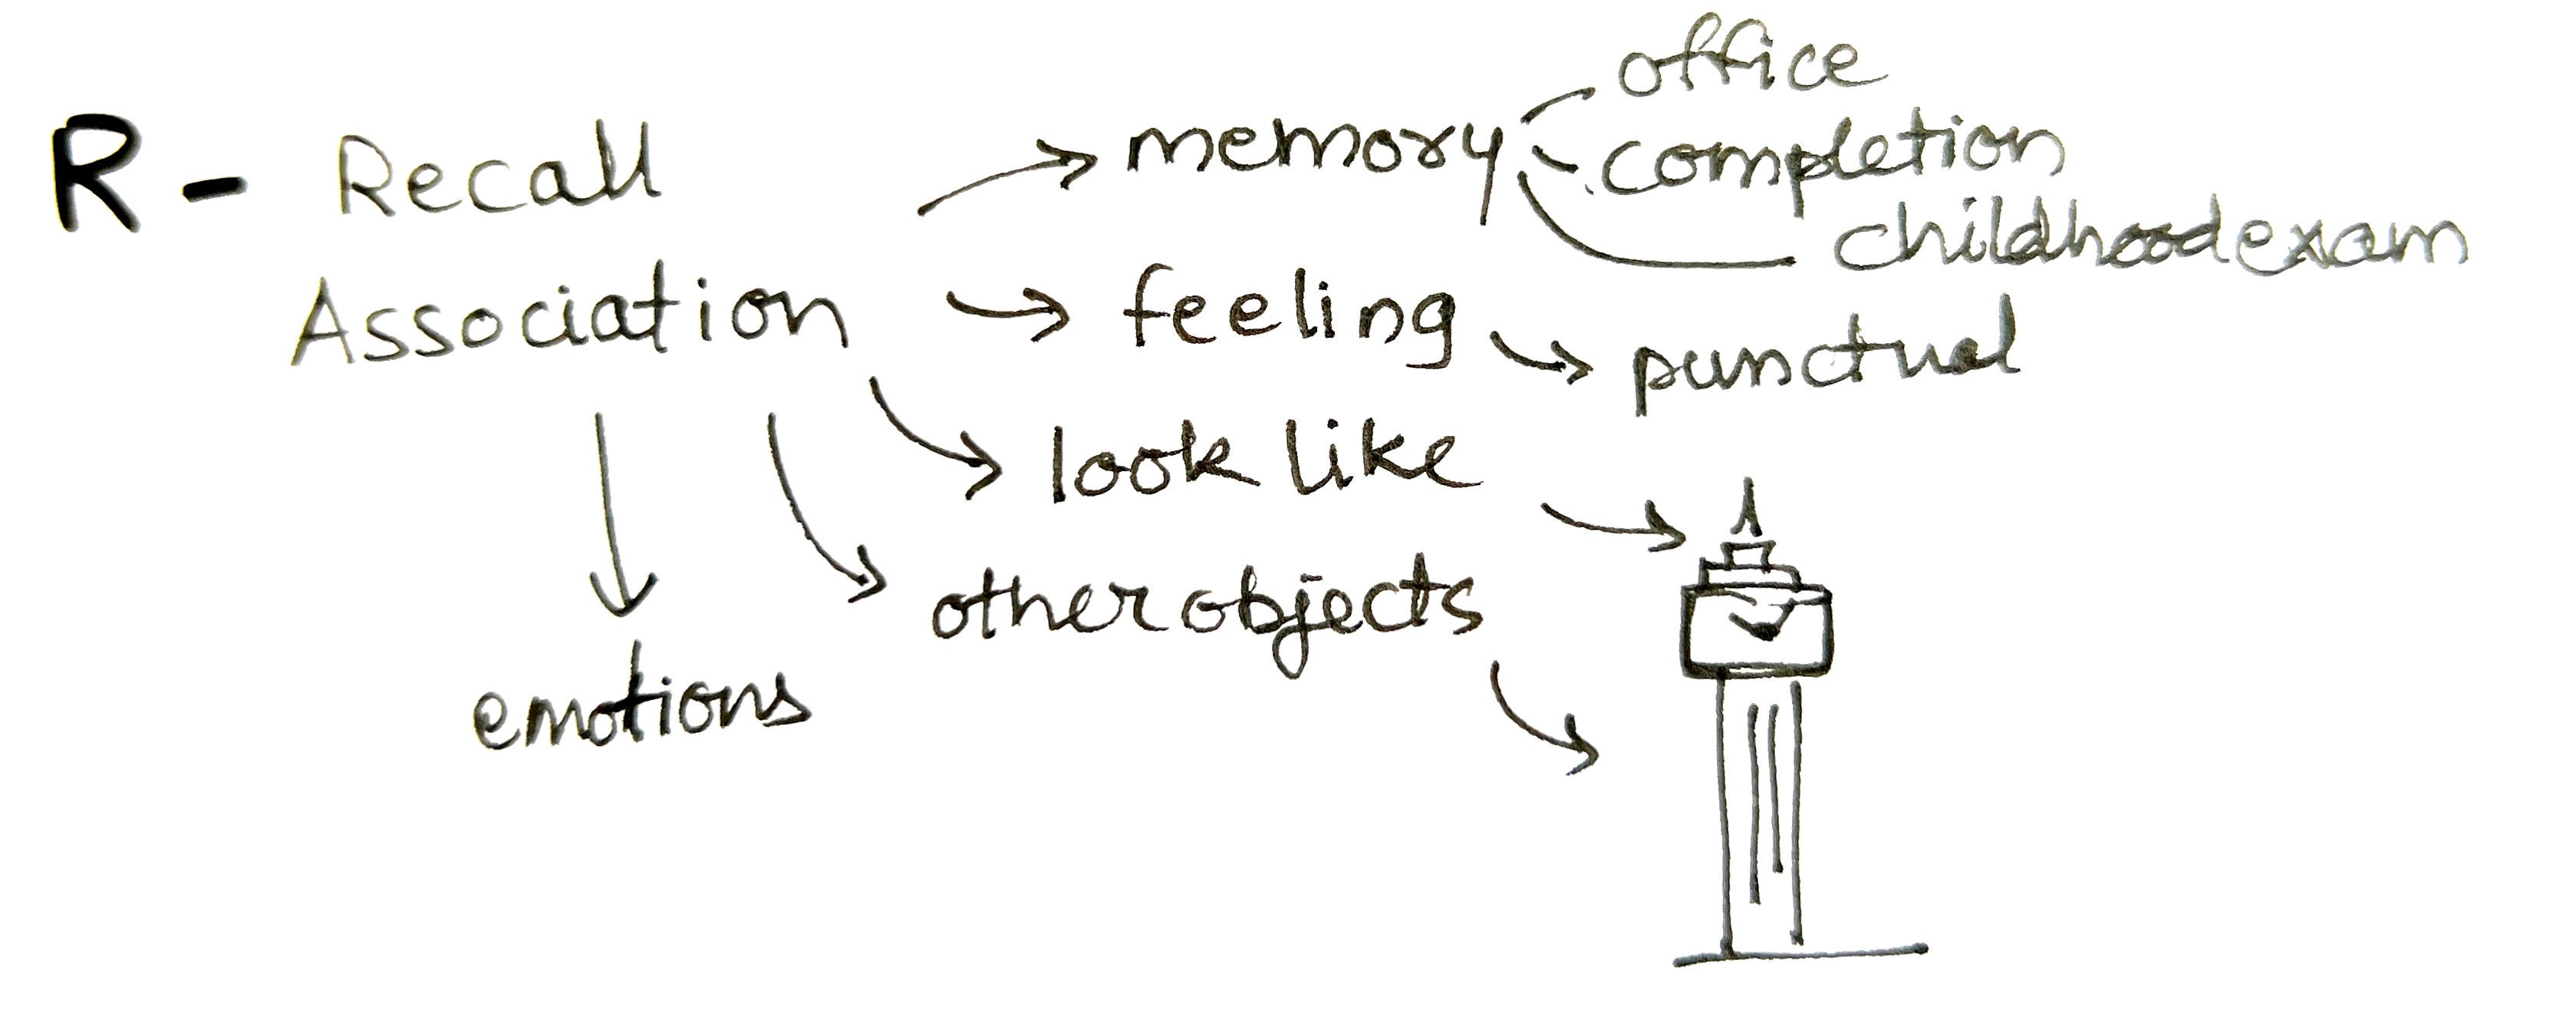 office
R - Recall
memory
completion
childhood exam
Association
feeling
punctual
look like
other objects
emotions